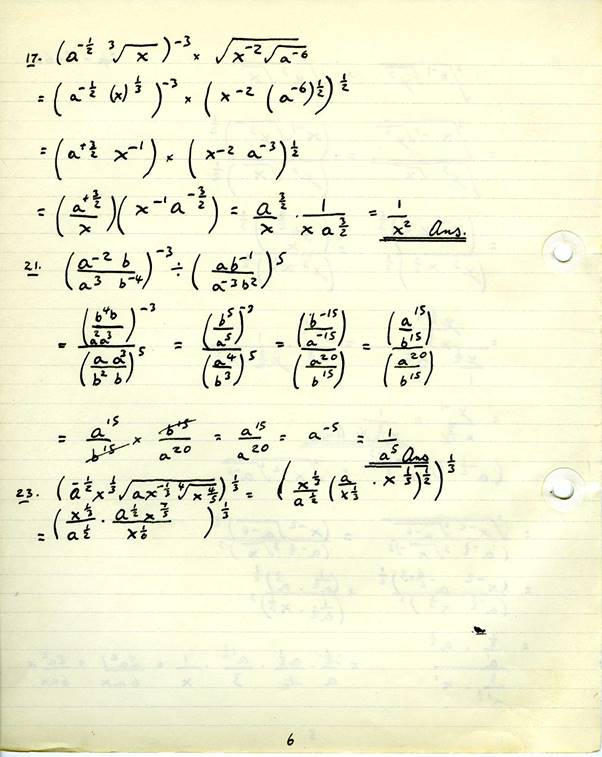 17. (a^{-1/2} ∛x)^{-3} × √(x^{-2} √(a^{-6}))
= (a^{-1/2} (x)^{1/3})^{-3} × (x^{-2} (a^{-6})^{1/2})^{1/2}
= (a^{+3/2} x^{-1}) × (x^{-2} a^{-3})^{1/2}
= (a^{+3/2}/x)(x^{-1} a^{-3/2}) = a^{3/2}/x · 1/(x a^{3/2}) = 1/x^2 Ans.
21. (a^{-2} b / a^3 b^{-4})^{-3} ÷ (ab^{-1} / a^{-3} b^2)^5
= (b^4 b / a^2 a^3)^{-3} / (a a^3 / b^2 b)^5 = (b^5/a^5)^{-3} / (a^4/b^3)^5 = (b^{-15}/a^{-15}) / (a^{20}/b^{15}) = (a^{15}/b^{15}) / (a^{20}/b^{15})
= a^{15}/b^{15} × b^{15}/a^{20} = a^{15}/a^{20} = a^{-5} = 1/a^5 Ans
23. (a^{-1/2} x^{1/3} √(ax^{-1/3} ∜(x^{4/5})))^{1/3} = (x^{1/3}/a^{1/2} (a/x^{1/3} · x^{1/5})^{1/2})^{1/3}
6